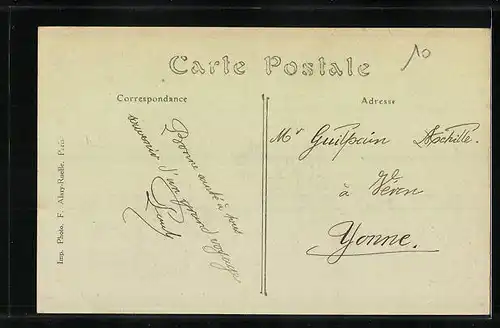 Carte Postale
10
Correspondance
Adresse
Bonne santé à tous
souvenir d'un grand voyage
Mr Guilpain Achille
à Véron
Yonne.
Imp. Photo. F. Alary-Ruelle, Paris